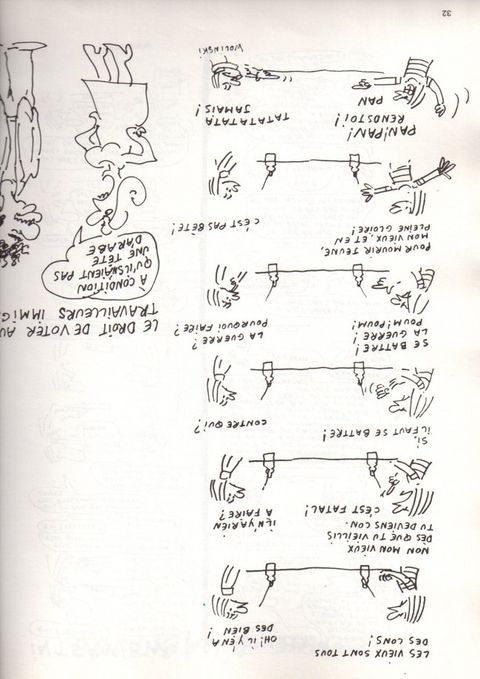 LES VIEUX SONT TOUS
DES CONS!
OH! IL Y EN A
DES BIEN!
NON MON VIEUX
DÈS QUE TU VIEILLIS
TU DEVIENS CON.
C'EST FATAL!
IL N'Y A RIEN
A FAIRE?
SI,
IL FAUT SE BATTRE!
CONTRE QUI?
SE BATTRE!
LA GUERRE!
POUM! POUM!
LA GUERRE?
POURQUOI FAIRE?
POUR MOURIR JEUNE,
MON VIEUX, ET EN
PLEINE GLOIRE!
C'EST PAS BÊTE!
PAN! PAN!
RENDS TOI!
PAN
TATATATATA
JAMAIS!
WOLINSKI
32
LE DROIT DE VOTER AU
TRAVAILLEURS IMMIG
A CONDITION
QU'ILS N'AIENT PAS
UNE TÊTE
D'ARABE